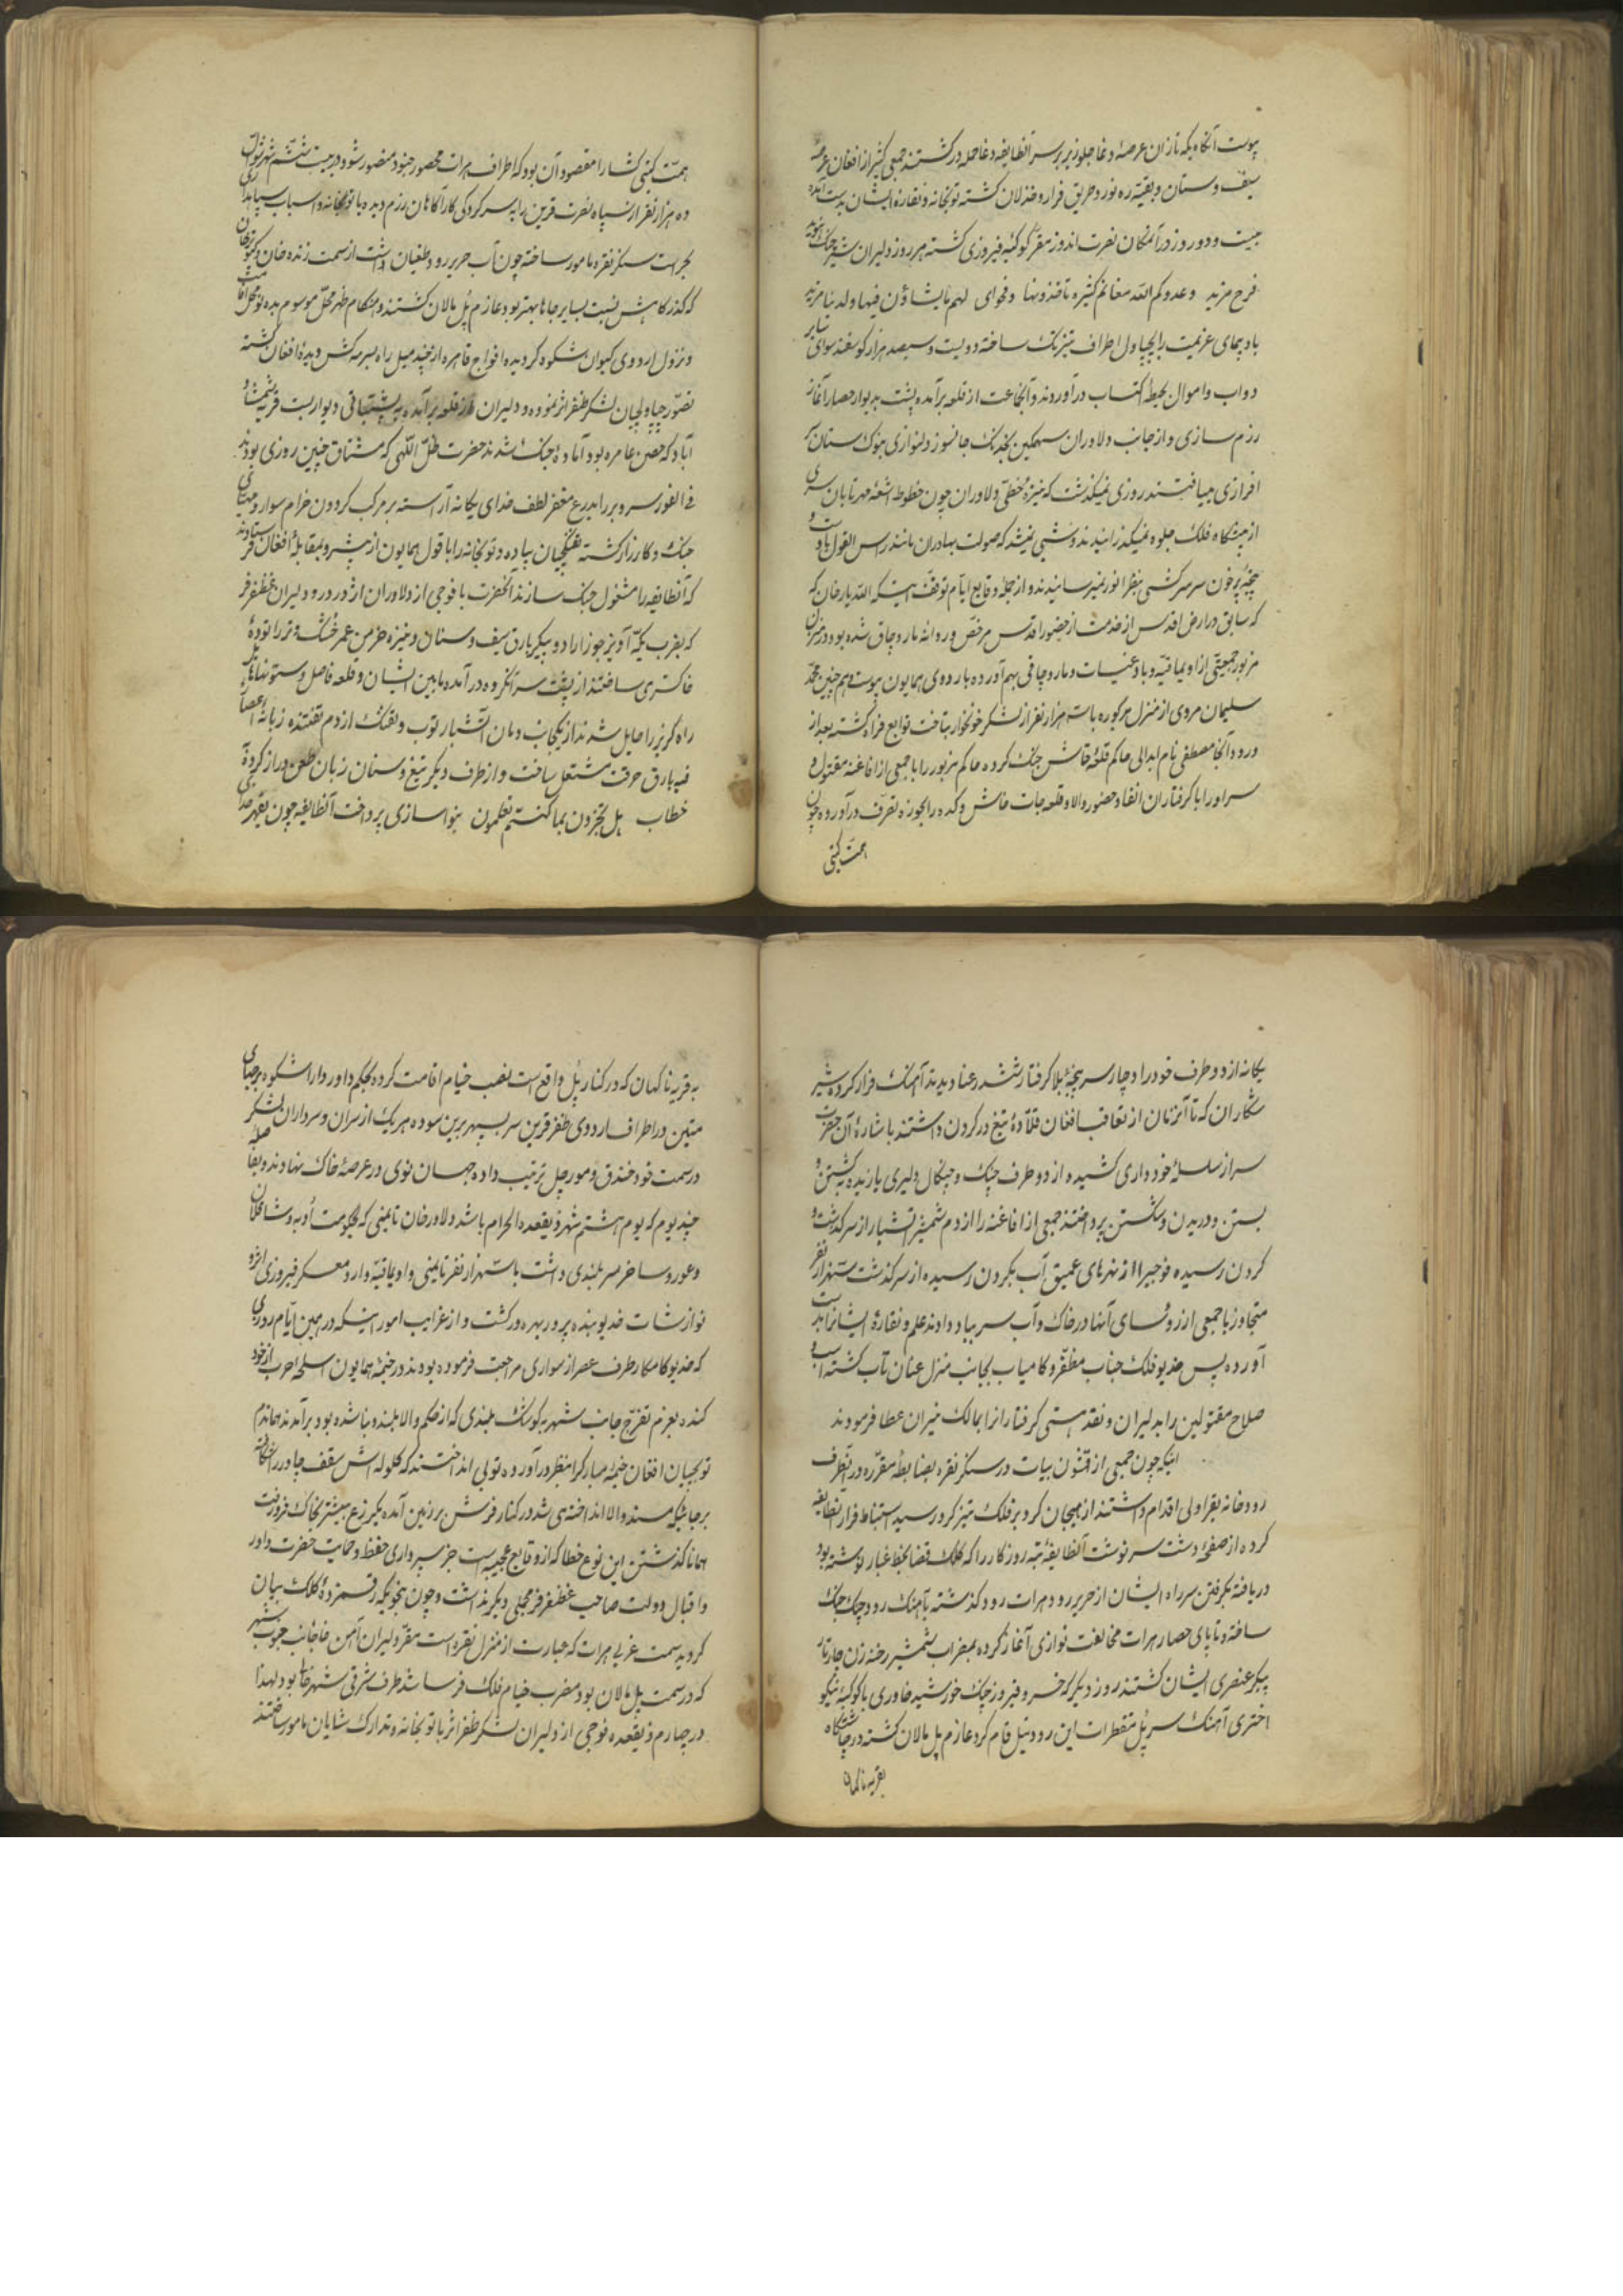 پیوست آنگاه یکه تازان عرصهٔ وغا جلوریز بر سر آنطایفه دغا حمله‌ور گشتند جمعی کثیر از افغان عرصهٔ
سیف و سنان و بقیه ره نورد طریق فرار و خذلان گشته توپخانه و نقاره ایشان بدست آمده
بیست و دو روز در آنمکان نصرت اندوز مقر کوکبهٔ فیروزی گشته هر روز دلیران شیر جنگ
فرح مزید وعدکم الله مغانم کثیرة تاخذونها و فحوای لهم مایشاؤن فیها ولدینا مزید
بادپیمای عزیمت را بچپاول اطراف تیز تک ساخته دویست و سیصد هزار گوسفند سوای سایر
دواب و اموال بحیطهٔ اکتساب درآوردند و آنجماعت از قلعه برآمده پشت بدیوار حصار آغاز
رزم سازی و از جانب دلاوران سهمگین بخدنگ جانسوز دلنوازی بنوک سنان سر
افرازی مییافتند روزی نمیگذشت که نیزهٔ خطی دلاوران چون خطوط اشعهٔ مهر تابان سری
از پیشگاه فلک جلوه نمیگذرانیدند و شبی نمیشد که صولت بهادران مانند راس الغول با دست و
پنجهٔ پر خون سر سرکشی بنظر انور نمیرسانیدند و از جملهٔ وقایع ایام توقف اینست که الله یار خان که
که سابق در ارض اقدس از خدمت از حضور اقدس مرخص و روانه ماروچاق شده بود در
مزبور جمعیتی از اویماقیه و بادغیسات و ماروچاقی بهم آورده باردوی همایون پیوست و هم چنین محمد
سلیمان مروی از منزل مزبوره با سه هزار نفر از لشکر خونخوار بتاخت توابع فراه گشته بعد از
ورود آنجا مصطفی نام ابدالی حاکم قلعهٔ قاش جنگ کرده حاکم مزبور را با جمعی از افاغنه مقتول و
سر او را با گرفتاران انفاد حضور والا و قلعه جات خاش و کده را بحوزه تصرف درآورده چون
همت گیتی
همت گیتی گشا را مقصود آن بود که اطراف هرات محصور جنود منصور شود در بیست ششم شهر شوال
ده هزار نفر از سپاه نصرت قرین را بسر کردگی کارآگاهان رزم دیده با توپخانه و اسباب سپاهداری
بحراست سنگر نقره مامور ساخته چون آب هریرود طغیان داشت از سمت زنده خان و
که گذرگاهش نسبت بسایر جاها بهتر بود عازم پل مالان گشتند و هنگام ظهر محل موسوم بده نو محل اقامت
و نزول اردوی کیوان شکوه گردیده افواج قاهره از چند میل راه سرمه کش دیدهٔ افغان گشته
تصور چپاولچیان لشکر ظفر اثر نموده و دلیران از قلعه برآمده به پشتیبانی دیواربست قریهٔ شمشا
آباد که حصن عامره بود آمادهٔ جنگ شدند حضرت ظل اللهی که مشتاق چنین روزی بودند
فی الفور سر و بر را بدرع مغفر لطف خدای یگانه آراسته بر مرکب گردون خرام سوار و مهیای
جنگ و کارزار گشته تفنگچیان پیاده و توپخانه را با قول همایون از پیشرو بمقابلهٔ افغان فرستادند
که آنطایفه را مشغول جنگ سازند آنحضرت با فوجی از دلاوران اژدر در و دلیران غضنفر فر
که بضرب یکه آویز جوزا را دو پیکر بارق سیف و سنان و نیزه خرمن عمر خشک و تر را تودهٔ
خاکستری ساختند از پشت سر آنگروه درآمده مابین ایشان و قلعه فاصل و ستونهای
راه گریز را حایل شدند از یکجانب دمان آتشبار توپ و تفنگ از دم تفتیده زبانهٔ
فیه بارق حرقت مشتعل ساخت و از طرف دیگر تیغ و سنان زبان طعن دراز کرده
خطاب هل تجزون بما کنتم تعملون بنواسازی پرداخت آنطایفه چون بقهر
یگانه از دو طرف خود را دچار سرپنجهٔ بلا گرفتار ششدر عنا دیدند آهنگ فرار کرده شیر
شکاران که تا آنزمان از تعاقب افغان قلادهٔ تیغ در گردن داشتند باشارهٔ آن حضرت
سر از سلسلهٔ خودداری کشیده از دو طرف چنگ و چنگال دلیری یازیده به کشتن و
بستن و دریدن و شکستن پرداختند جمعی از افاغنه را از دم شمشیر آتشبار از سرگذشت و
گردن رسیده فوجی را از نهرهای عمیق آب بگردن رسیده از سر گذشت سه هزار نفر
متجاوز با جمعی از رؤسای آنها در خاک و آب سر بباد دادند علم و نقارهٔ ایشانرا بدست
آورده پس خدیو فلک جناب مظفر و کامیاب بجانب منزل عنان تاب گشته اسب و
صلاح مقتولین را بدلیران و نقد هستی گرفتارانرا بمالک نیران عطا فرمودند
اینکه چون جمعی از قشون بیات در سنگر نقره بضابطهٔ مقرره در آنطرف
رودخانه بقراولی اقدام داشتند از هیجان گرد بر فلک تیز گرد رسید استنباط فرار آنطایفه
کرده از صفحهٔ دشت سرنوشت آنطایفهٔ تبه روزگار را که کلک قضا بخط غبار نوشته بود
دریافته بگرفتن سر راه ایشان از هریرود هرات رود گذشته بآهنگ رود چنگ جنگ
ساخته و تا پای حصار هرات مخالفت نوازی آغاز کرده بمضراب شمشیر رخنه زن چار تار
پیکر عنصری ایشان گشتند روز دیگر که خسرو فیروز چنگ خورشید خاوری با کوکبهٔ نیکو
اختری آهنگ سر پل مقنطرات این رود نیل فام کرد عازم پل مالان گشته در چاشتگاه
بقریه ناگهان
به قریه ناگهان که در کنار پل واقع است نصب خیام اقامت کرده بحکم داور دارا شکوه برجهای
متین در اطراف اردوی ظفر قرین سر بسپهر برین سوده هر یک از سران و سرداران لشکر
در سمت خود خندق و مورچل ترتیب داده جهان نوی در عرصهٔ خاک نهادند و بفاصلهٔ
چند یوم که یوم هشتم شهر ذیقعده الحرام باشد دلاور خان تایمنی که بحکومت اوبه و شافلان
و غور و ساخر سربلندی داشت با سه هزار نفر تایمنی و اویماقیه وارد معسکر فیروزی اثر و
نوازشات خدیو بنده پرور بهره ور گشت و از غرایب امور اینکه در همین ایام روزی
که خدیو کامکار طرف عصر از سواری مراجعت فرموده بودند در خیمهٔ همایون اسلحه حرب از خود
کنده بعزم تفرج جانب شهر بکوشک بلندی که از حکم والا بلند و بنا شده بود برآمدند هماندم
توپچیان افغان خیمهٔ مبارک را منظر درآورده توپی انداختند که گلوله اش سقف چادر را شکافته
برجائیکه مسند والا انداخته می شد در کنار فرش بر زمین آمده یکزرع بیشتر بخاک فرو رفت
همانا گذشتن این نوع خطا که از وقایع عجیبه است جز سپرداری حفظ و حمایت حضرت داور
و اقبال دولت صاحب غضنفر فر محملی دیگر نداشت و چون بنحویکه رقمزدهٔ کلک بیان
گردید سمت غربی هرات که عبارت از منزل نقره است مقر دلیران آهن خا جانب جنوب شهر
که در سمت پل مالان بود مضرب خیام فلک فرسا شد طرف شرقی شهر خالی بود لهذا
در چهارم ذیقعده فوجی از دلیران لشکر ظفر اثر با توپخانه و تدارک شایان مامور ساختند